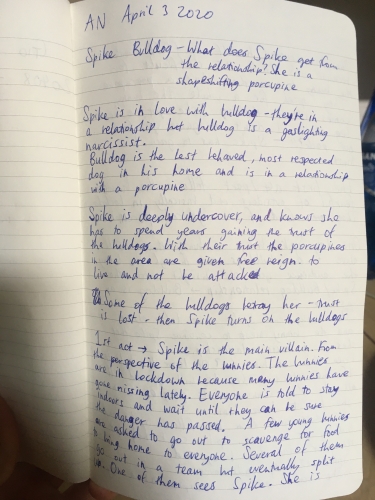 AN April 3 2020
Spike Bulldog - What does Spike get from
the relationship? She is a
shapeshifting porcupine
Spike is in love with bulldog - they're in
a relationship but bulldog is a gaslighting
narcissist.
Bulldog is the best behaved, most respected
dog in his home and is in a relationship
with a porcupine
Spike is deeply undercover, and knows she
has to spend years gaining the trust of
the bulldogs. With their trust the porcupines
in the area are given free reign to
live and not be attacked
Some of the bulldogs betray her - trust
is lost - then Spike turns on the bulldogs
1st act → Spike is the main villain. From
the perspective of the bunnies. The bunnies
are in lockdown because many bunnies have
gone missing lately. Everyone is told to stay
indoors and wait until they can be sure
the danger has passed. A few young bunnies
are asked to go out to scavenge for food
to bring home to everyone. Several of them
go out in a team but eventually split
up. One of them sees Spike. She is